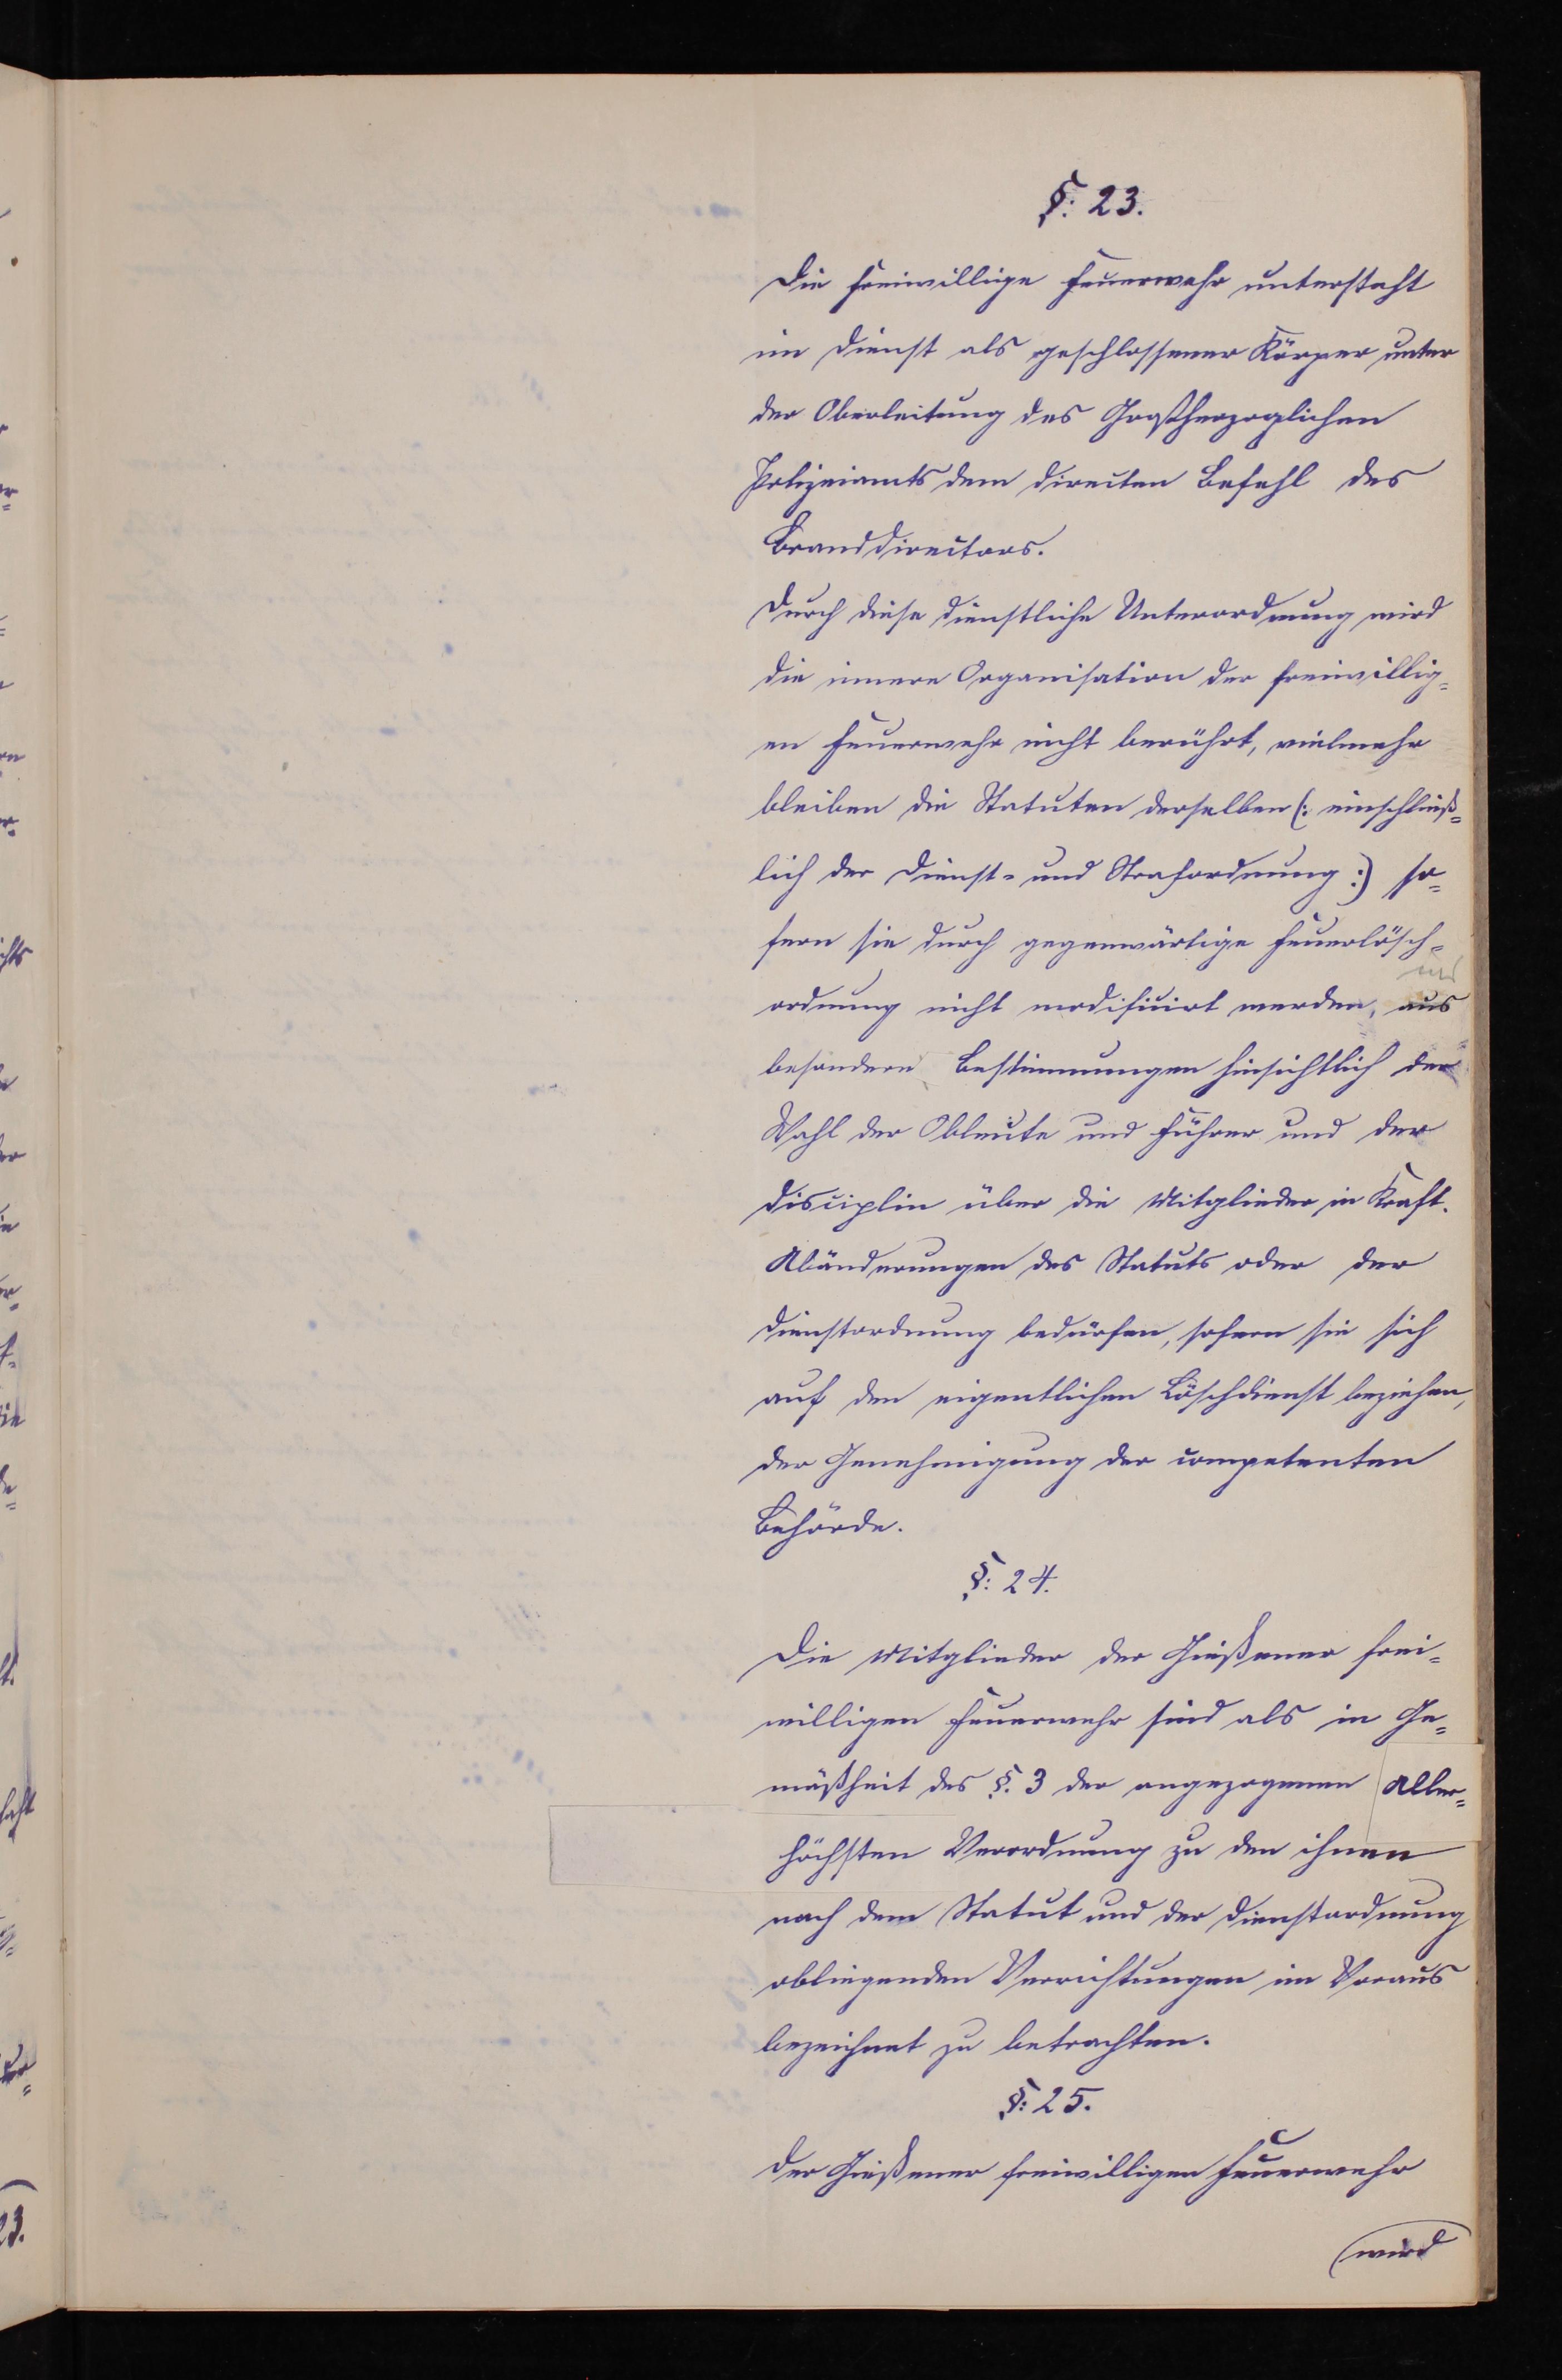 §: 23.
Die freiwillige Feuerwehr untersteht
im Dienst als geschlossener Körper unter
der Oberleitung des Großherzoglichen
Polizeiamts dem directen Befehl des
Branddirectors.
Durch diese dienstliche Unterordnung wird
die innere Organisation der freiwillig=
en Feuerwehr nicht berührt, vielmehr
bleiben die Statuten derselben (: einschließ=
lich der Dienst- und Strafordnung :) so=
fern sie durch gegenwärtige Feuerlösch=
und
ordnung nicht modificirt werden, aus
besondere Bestimmungen hinsichtlich der
Wahl der Obleute und Führer und der
Disciplin über die Mitglieder in Kraft.
Abänderungen des Statuts oder der
Dienstordnung bedürfen, sofern sie sich
auf den eigentlichen Löschdienst beziehen,
der Genehmigung der competenten
Behörde.
§: 24.
Die Mitglieder der Gießener frei=
willigen Feuerwehr sind als in Ge=
mäßheit des §. 3 der angezogenen Aller=
höchsten Verordnung zu den ihnen
nach dem Statut und der Dienstordnung
obliegenden Verrichtungen im Voraus
bezeichnet zu betrachten.
§: 25.
Der Gießener freiwilligen Feuerwehr
wird